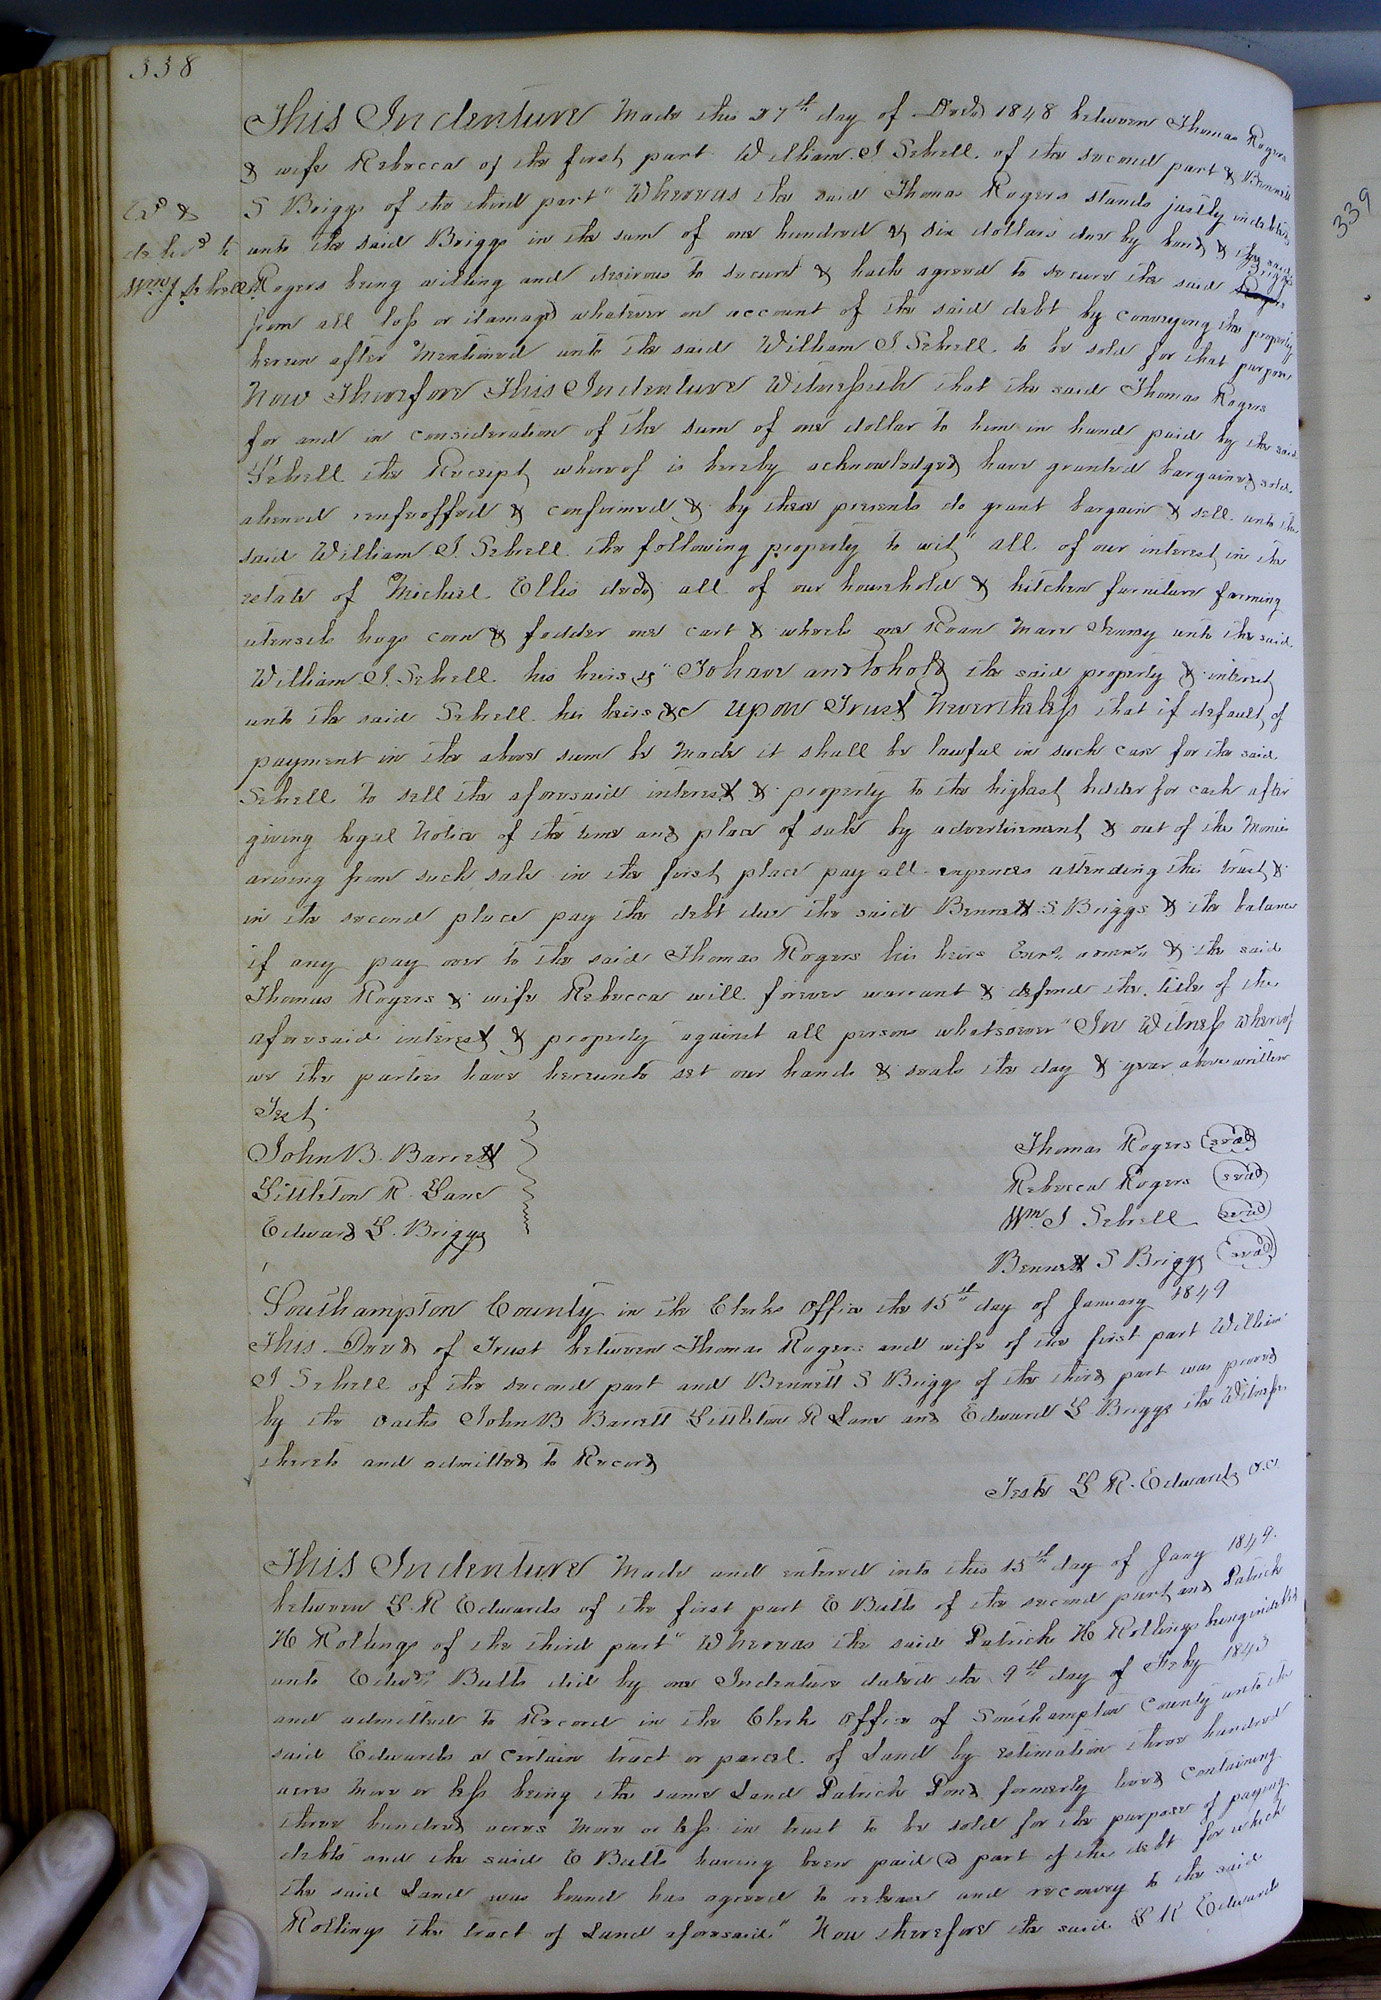 338
This Indenture Made this 27th day of Decr 1848 between Thomas Rogers
& wife Rebecca of the first part William J Sebrell of the second part & Bennett
S Briggs of the third part" Whereas the said Thomas Rogers stands justly indebted
Exd &
delivd to
Wm J Sebrell
unto the said Briggs in the sum of one hundred & six dollars due by bond & the said
Rogers being willing and desirous to secure & hath agreed to secure the said Briggs
from all loss or damage whatever on account of the said debt by conveying the property
herein after Mentioned unto the said William J. Sebrell to be sold for that purpose
Now Therefore This Indenture Witnesseth that the said Thomas Rogers
for and in consideration of the sum of one dollar to him in hand paid by the said
Sebrell the Receipt whereof is hereby acknowledged have granted bargained sold
aliened enfeoffed & confirmed & by these presents do grant bargain & sell unto the
said William J. Sebrell the following property to wit" all of our interest in the
estate of Michael Ellis decd all of our household & kitchen furniture farming
utensils hogs corn & fodder one cart & wheels one Roan Mare Jenny unto the said
William J. Sebrell his heirs &" To have and to hold the said property & interest
unto the said Sebrell his heirs &c upon Trust Nevertheless that if default of
payment in the above sum be Made it shall be lawful in such case for the said
Sebrell to sell the aforesaid interest & property to the highest bidder for cash after
giving legal Notice of the time and place of sale by advertisement & out of the Monies
arising from such sale in the first place pay all expences attending this trust &
in the second place pay the debt due the said Bennett S. Briggs & the balance
if any pay over to the said Thomas Rogers his heirs & the said
Thomas Rogers & wife Rebecca will forever warrant & defend the title of the
aforesaid interest & property against all persons whatsoever" In Witness whereof
we the parties have hereunto set our hands & seals the day & year above written
Test
John B. Barrett
Littleton R. Lane
Edward L. Briggs
Thomas Rogers (seal)
Rebecca Rogers (seal)
Wm J Sebrell (seal)
Bennett S Briggs (seal)
Southampton County in the Clerks Office the 15th day of January 1849
This Deed of Trust between Thomas Rogers and wife of the first part William
J Sebrell of the second part and Bennett S Briggs of the third part was proved
by the oaths John B Barrett Littleton R Lane and Edward L Briggs the Witnesses
thereto and admitted to Record
Teste L R. Edwards c.c.
This Indenture Made and entered into this 15th day of Jany 1849.
between L. R Edwards of the first part E Butts of the second part and Patrick
H Rollings of the third part" Whereas the said Patrick H Rollings being indebted
unto Edwd Butts did by one Indenture dated the 9th day of Feby 1843
and admitted to Record in the Clerks Office of Southampton County unto the
said Edwards a certain tract or parcel of Land by estimation three hundred
acres More or less being the same Land Patrick Pond formerly lived containing
three hundred acres More or less in trust to be sold for the purpose of paying
debts and the said E Butts having been paid a part of the debt for which
the said Land was bound has agreed to release and reconvey to the said
Rollings the tract of Land aforesaid" Now therefore the said L R Edwards
339